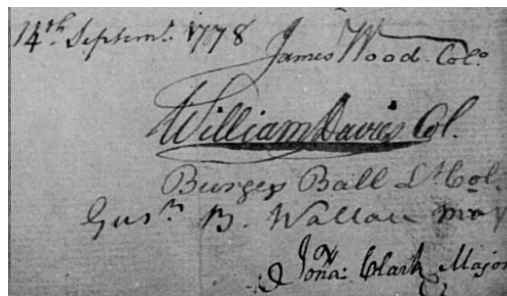 14th Septemr. 1778
James Wood. Colo
William Davies Col.
Burges Ball Lt Col.
Gusts B. Wallace Maj
Jona: Clark, Major